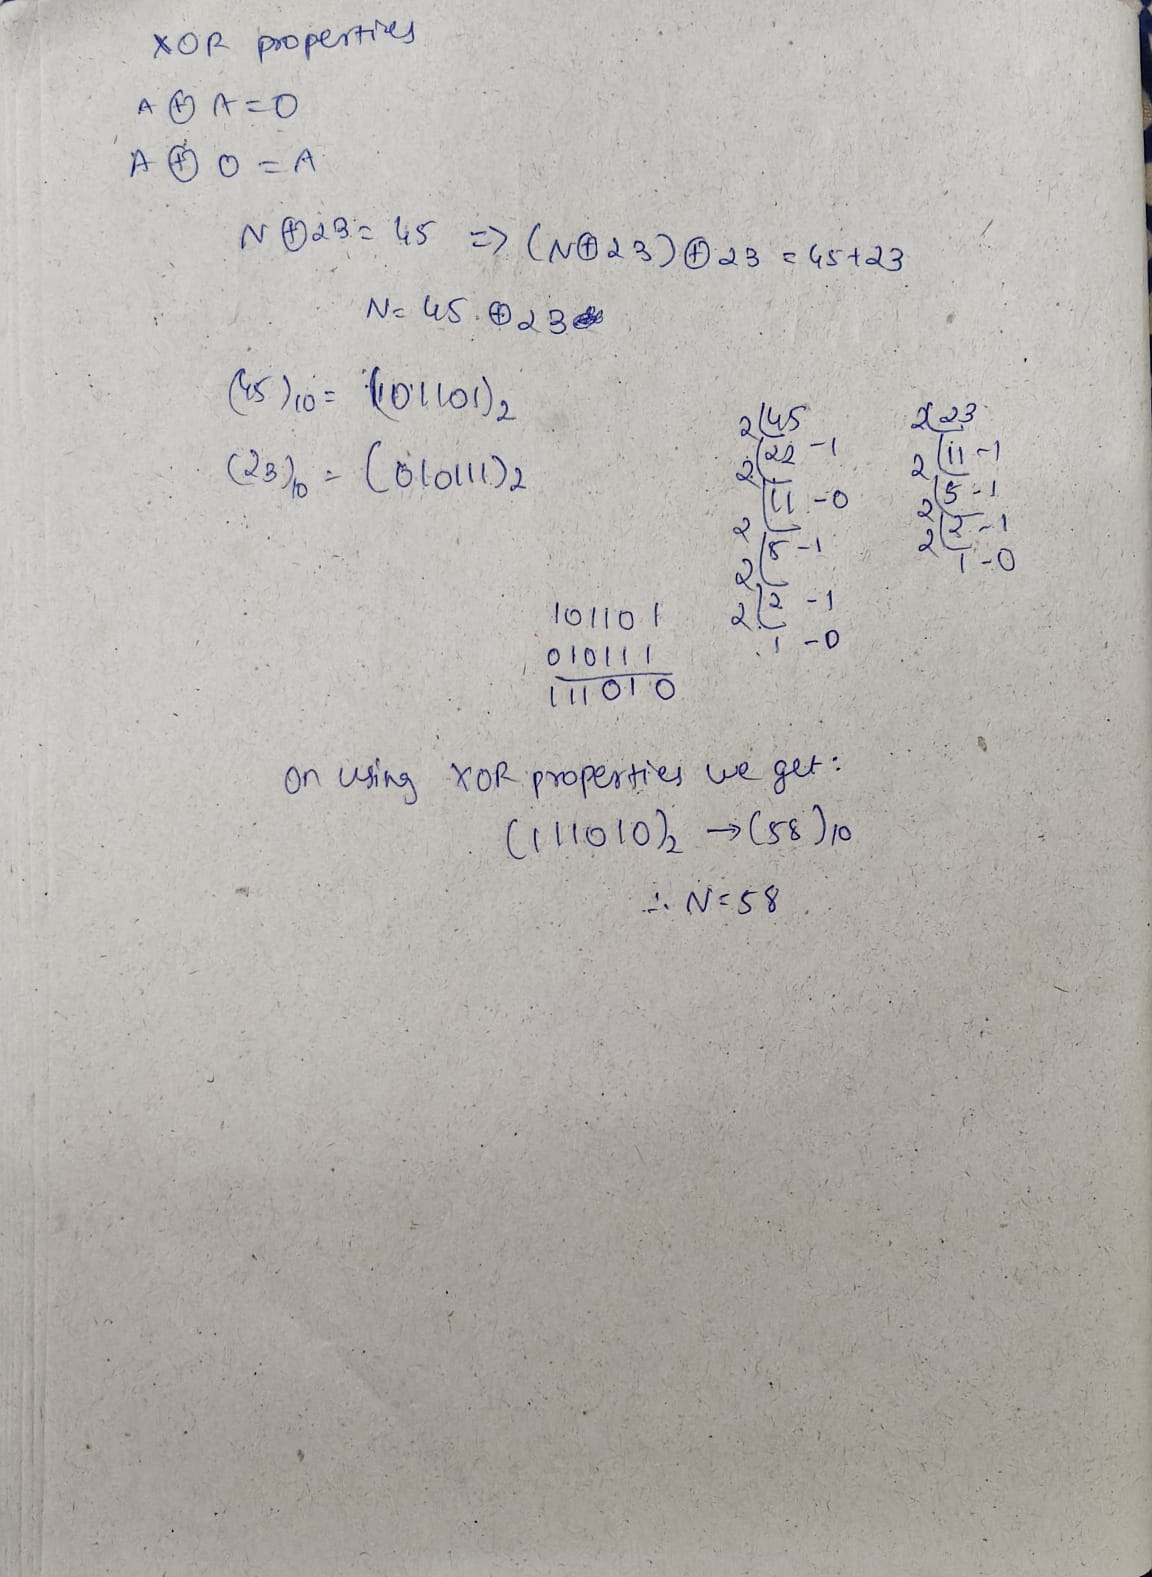 XOR properties
A ⊕ A = 0
A ⊕ 0 = A
N ⊕ 23 = 45 => (N ⊕ 23) ⊕ 23 = 45 + 23
N = 45 ⊕ 23
(45)10 = (101101)2
(23)10 = (010111)2
2 45
2 22 - 1
2 11 - 0
2 5 - 1
2 2 - 1
1 - 0
2 23
2 11 - 1
2 5 - 1
2 2 - 1
1 - 0
101101
010111
111010
On using XOR properties we get:
(111010)2 → (58)10
∴ N = 58